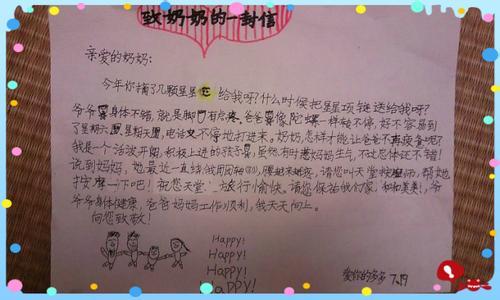 致奶奶的一封信
亲爱的奶奶:
今年你摘了几颗星星 给我呀?什么时候把星星项链送给我呀?
爷爷 身体不错,就是脚 有点疼。爸爸 像陀螺一样转不停,好不容易到
了星期六 ,星期天 ,电话又不停地打进来。奶奶,怎样才能让爸爸不再疲惫呢?
我是个活泼开朗,积极上进的孩子 ,虽然有时惹妈妈生气,不过总体还不错!
说到妈妈,她最近一直 腰越来越疼,请您叫天堂 师,帮她
按摩一下吧!祝您天堂 旅行愉快。请您保祐我们家,和和美美!爷
爷身体健康,爸爸妈妈工作顺利,我天天向上。
向您致敬!
Happy!
Happy!
Happy!
Happy!
爱你的多多 7.19